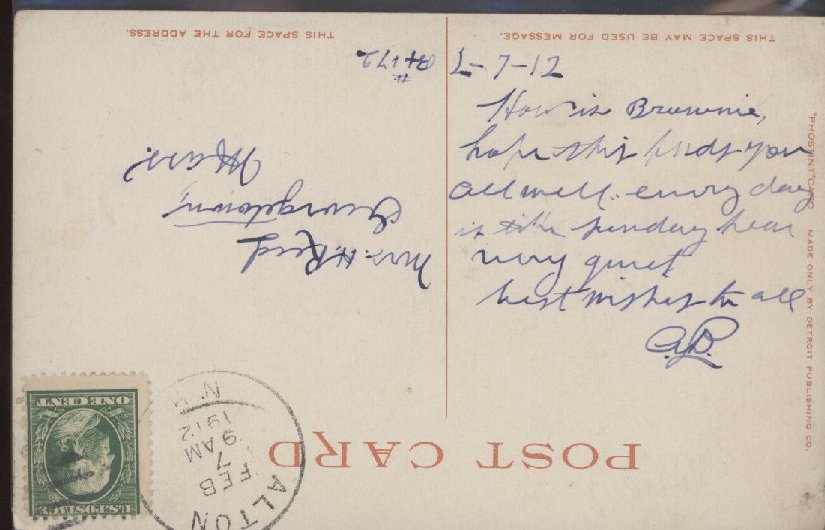 THIS SPACE FOR THE ADDRESS.
THIS SPACE MAY BE USED FOR MESSAGE.
2-7-12
How is Brownie,
hope this finds you
all well. every day
is like sunday hear
very quiet
best wishes to all
Mrs. H. Reed
Georgetown,
Mass.
POST CARD
"PHOSTINT" CARD MADE ONLY BY DETROIT PUBLISHING CO.
ALTON
FEB
7
9 AM
1912
N.H.
U.S. POSTAGE
ONE CENT